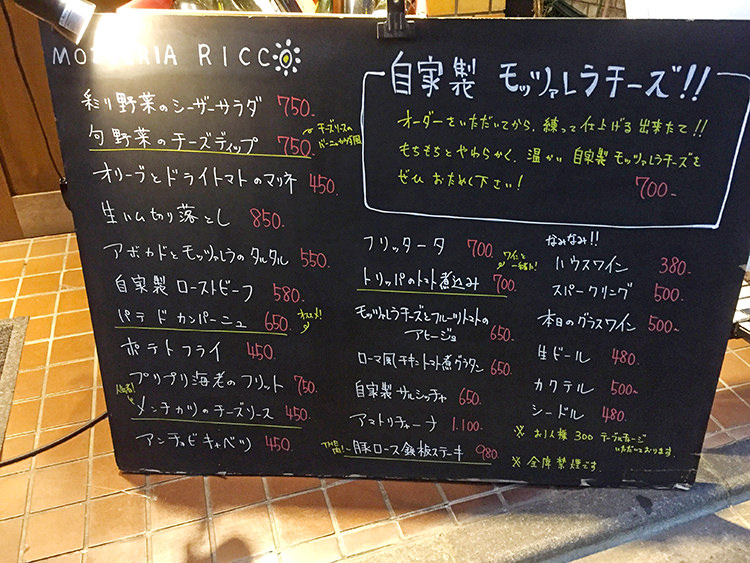 RICCO
自家製 モッツァレラチーズ!!
オーダーをいただいてから、練って仕上げる出来たて!!
もちもちとやわらかく、温かい 自家製モッツァレラチーズを
ぜひ おためし下さい!
700-
彩り野菜のシーザーサラダ 750-
旬野菜のチーズディップ 750-
チーズソースの
オリーブとドライトマトのマリネ 450-
生ハム切り落とし 850-
アボカドとモッツァレラのタルタル 550-
自家製 ローストビーフ 580-
パテ ド カンパーニュ 650-
ポテトフライ 450-
プリプリ海老のフリット 750-
人気者!
メンチカツのチーズソース 450-
アンチョビキャベツ 450-
フリッタータ 700-
ワインと
一緒に!
トリッパのトマト煮込み 700-
モッツァレラチーズとフルーツトマトの
アヒージョ 650-
ローマ風チキントマト煮グラタン 650-
自家製 サルシッチャ 650-
アマトリチャーナ 1.100-
豚ロース鉄板ステーキ 980-
なみなみ!!
ハウスワイン 380-
スパークリング 500-
本日のグラスワイン 500~
生ビール 480-
カクテル 500~
シードル 480-
※ お1人様 300 テーブルチャージ
いただいております。
※ 全席禁煙です。